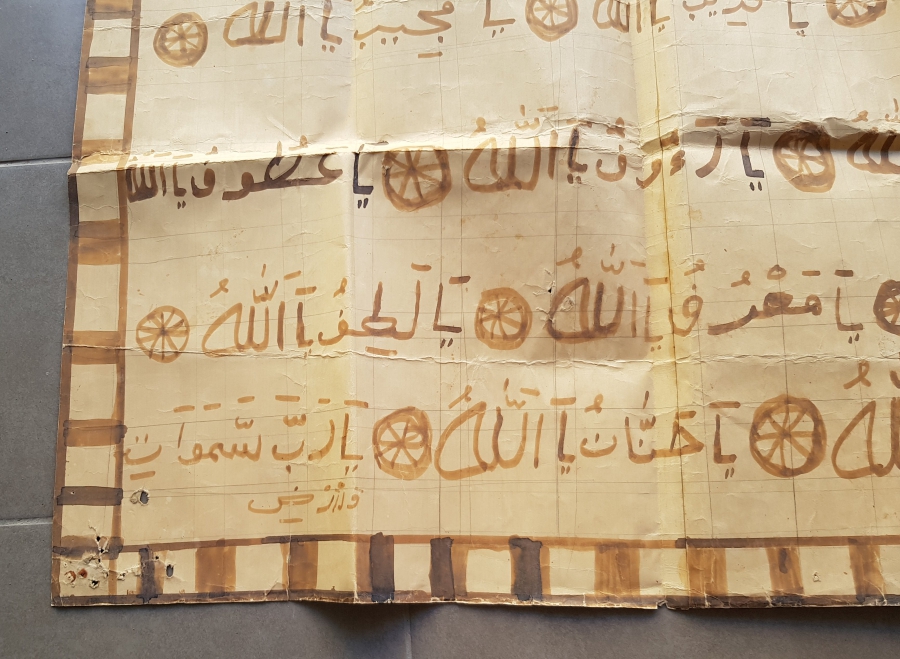 يا قديب يا الله يا مجيب يا الله
الله يا رءوف يا الله يا عطوف يا الله
يا معروف يا الله يا لطيف يا الله
الله يا حنان يا الله يا رب سموات
وارض